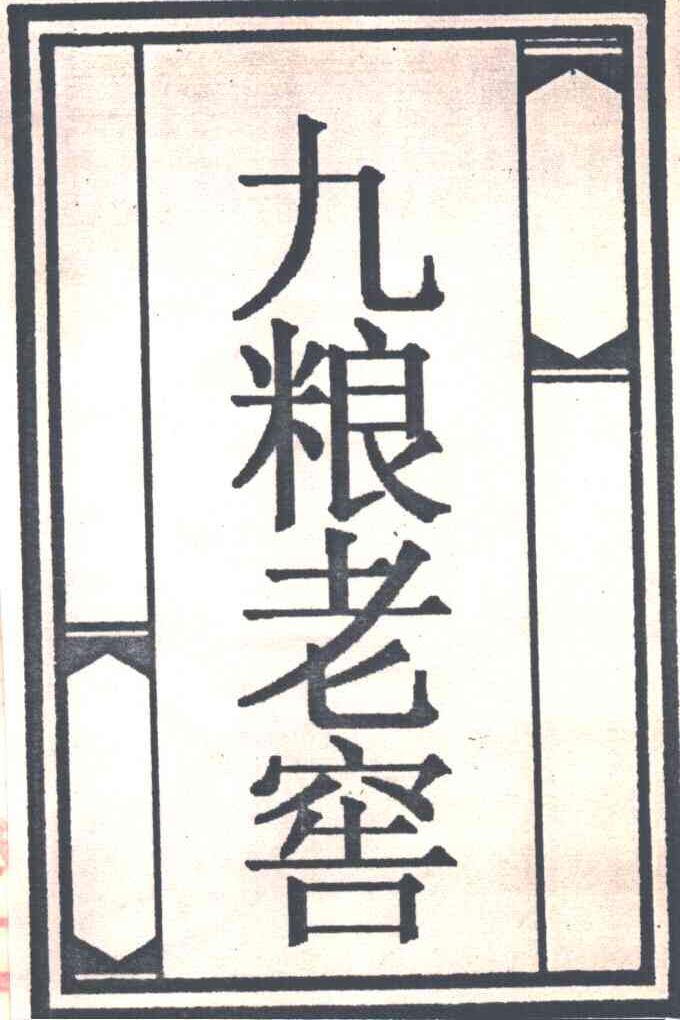 九粮老窖